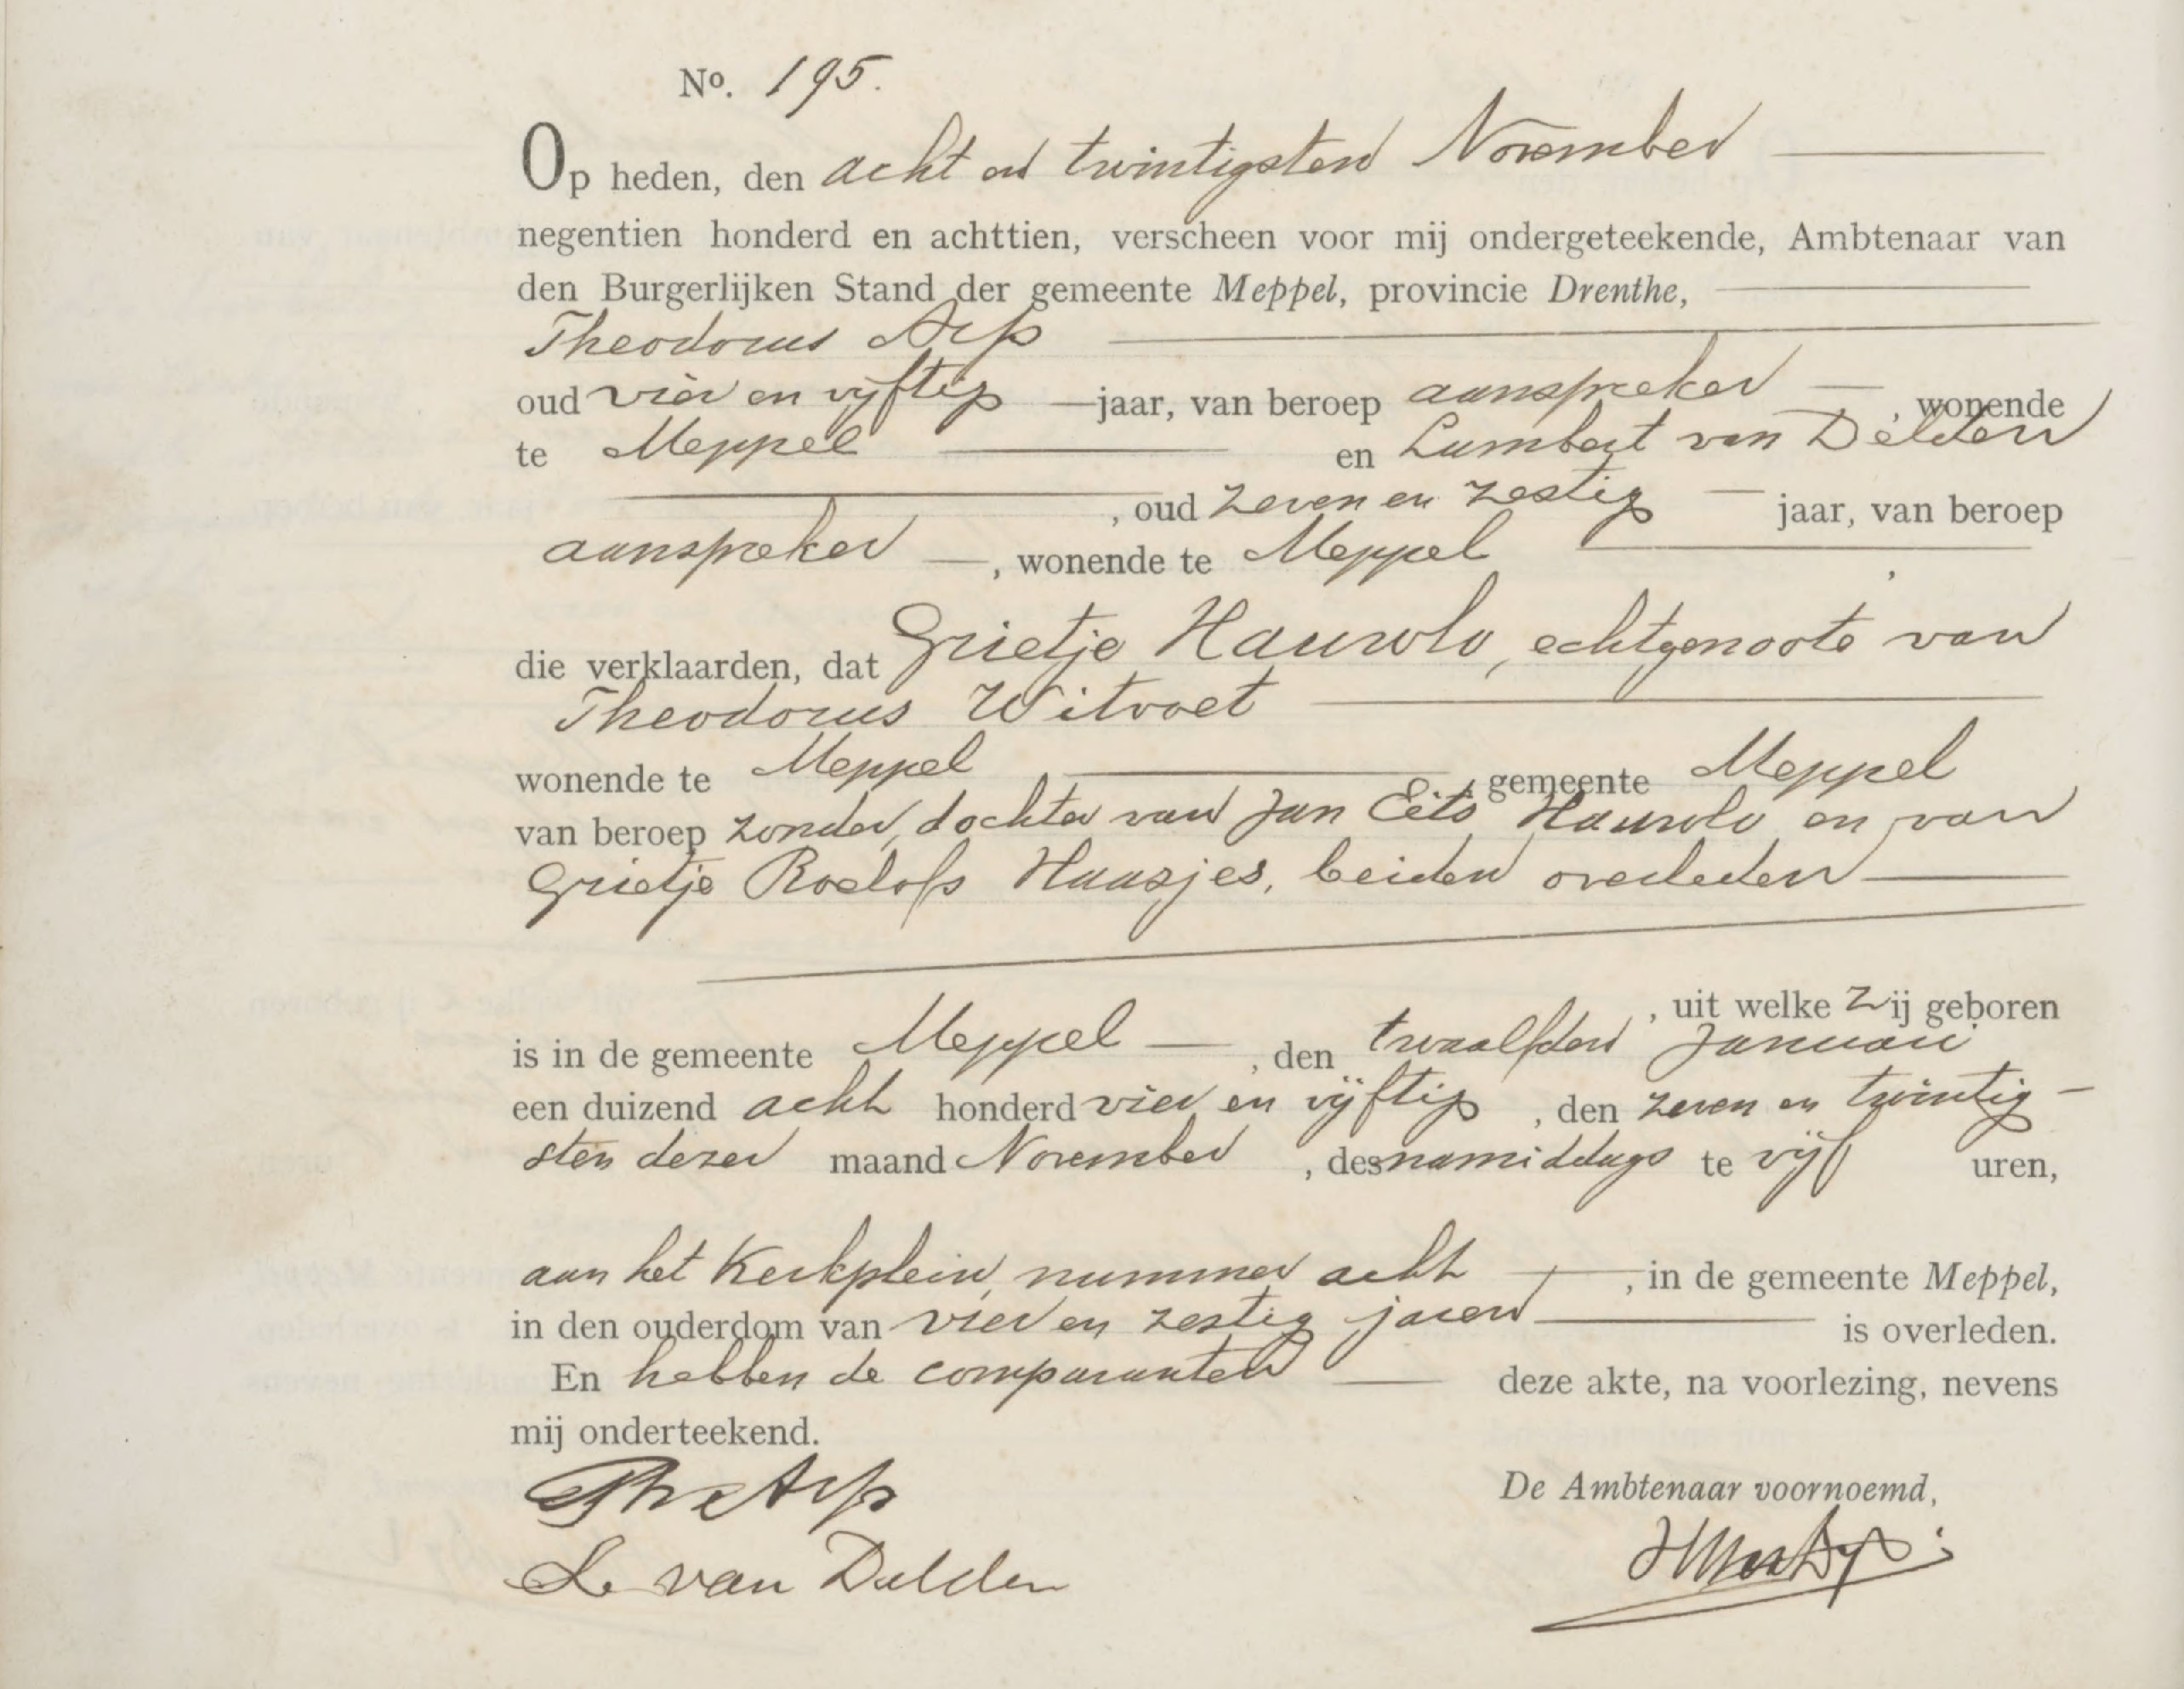 No. 195.
Op heden, den acht en twintigsten November
negentien honderd en achttien, verscheen voor mij ondergeteekende, Ambtenaar van
den Burgerlijken Stand der gemeente Meppel, provincie Drenthe,
Theodorus Arp
oud vier en vijftig jaar, van beroep aanspreker, wonende
te Meppel en Lambert van Delden
, oud zeven en zestig jaar, van beroep
aanspreker, wonende te Meppel
die verklaarden, dat Grietje Hauwlo, echtgenoote van
Theodorus Witvoet
wonende te Meppel gemeente Meppel
van beroep zonder, dochter van Jan Eits Hauwlo en van
Grietje Roelofs Haasjes, beiden overleden
, uit welke zij geboren
is in de gemeente Meppel, den twaalfden Januari
een duizend acht honderd vier en vijftig, den zeven en twintig-
sten dezer maand November, des namiddags te vijf uren,
aan het Kerkplein, nummer acht, in de gemeente Meppel,
in den ouderdom van vier en zestig jaren is overleden.
En hebben de comparanten deze akte, na voorlezing, nevens
mij onderteekend.
De Ambtenaar voornoemd,
Th Arp
L van Delden